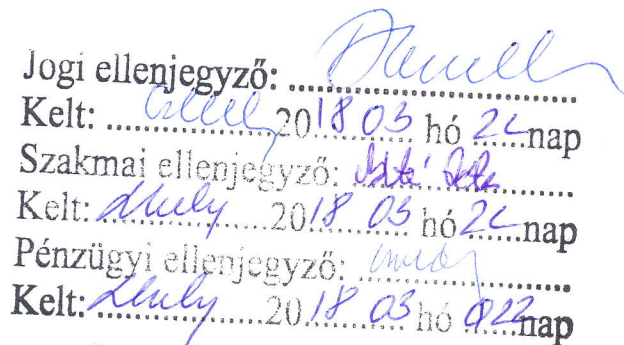 Jogi ellenjegyző: ....................
Kelt: .................... 2018 03 hó 22 nap
Szakmai ellenjegyző: ....................
Kelt: .................... 2018 03 hó 22 nap
Pénzügyi ellenjegyző: ....................
Kelt: .................... 2018 03 hó 022 nap